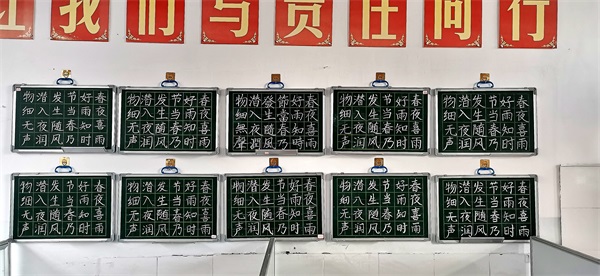 让我们与责任同行
春夜喜雨
好雨知时
节当春乃
发生随风
潜入夜润
物细无声
春夜喜雨
好雨知时
节当春乃
发生随风
潜入夜润
物细无声
春夜喜雨
好雨知時
節當春乃
發生隨風
潜入夜潤
物細無聲
春夜喜雨
好雨知时
节当春乃
发生随风
潜入夜润
物细无声
春夜喜雨
好雨知时
节当春乃
发生随风
潜入夜润
物细无声
春夜喜雨
好雨知时
节当春乃
发生随风
潜入夜润
物细无声
春夜喜雨
好雨知时
节当春乃
发生随风
潜入夜润
物细无声
春夜喜雨
好雨知时
节当春乃
发生随风
潜入夜润
物细无声
春夜喜雨
好雨知时
节当春乃
发生随风
潜入夜润
物细无声
春夜喜雨
好雨知时
节当春乃
发生随风
潜入夜润
物细无声